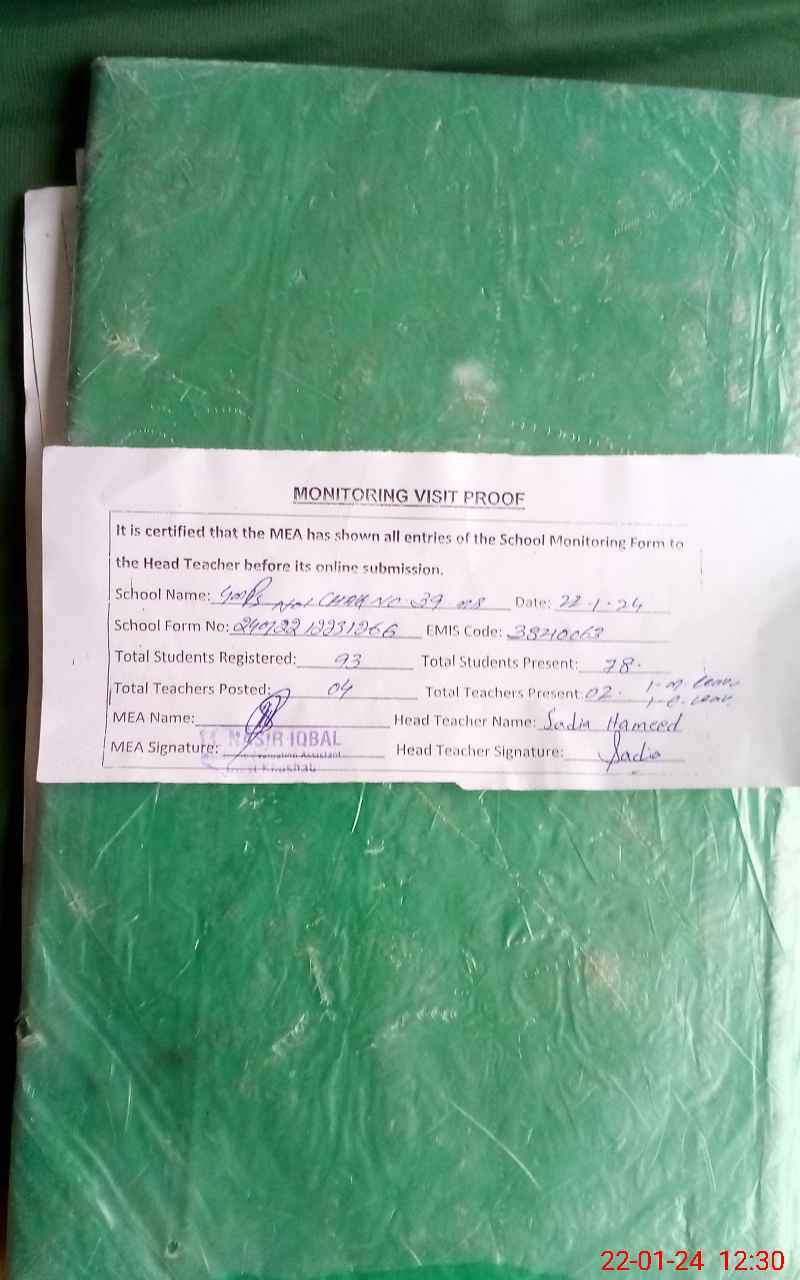 MONITORING VISIT PROOF
It is certified that the MEA has shown all entries of the School Monitoring Form to
the Head Teacher before its online submission.
School Name: CHAK NO 39 Date: 22-1-24
School Form No: EMIS Code:
Total Students Registered: 93 Total Students Present: 78.
Total Teachers Posted: 04 Total Teachers Present: 02. 1-m leave
1-c. leave
MEA Name: Head Teacher Name: Sadia Hameed
MEA Signature: NASIR IQBAL Head Teacher Signature: Sadia
Assistant
Khushab
22-01-24 12:30